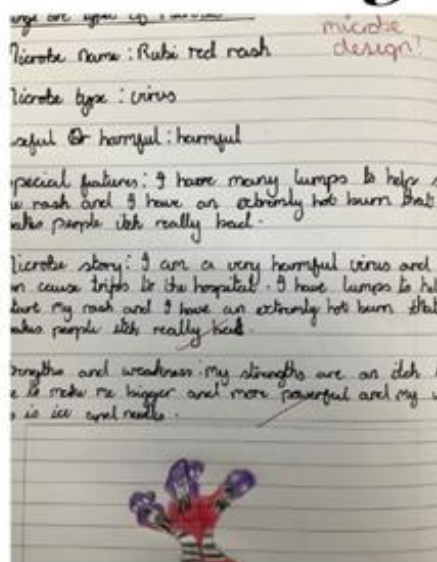 microbe
design!
Microbe name: Rubi red rash
Microbe type: virus
useful or harmful: harmful
Special features: I have many lumps to help
rash and I have an extremly hot burn that
makes people itch really bad.
Microbe story: I am a very harmful virus and
can cause trips to the hospital. I have lumps to
start my rash and I have an extremly hot burn that
makes people itch really bad.
strengths and weakness: my strengths are an itch
to make me bigger and more powerful and my
is ice and needls.